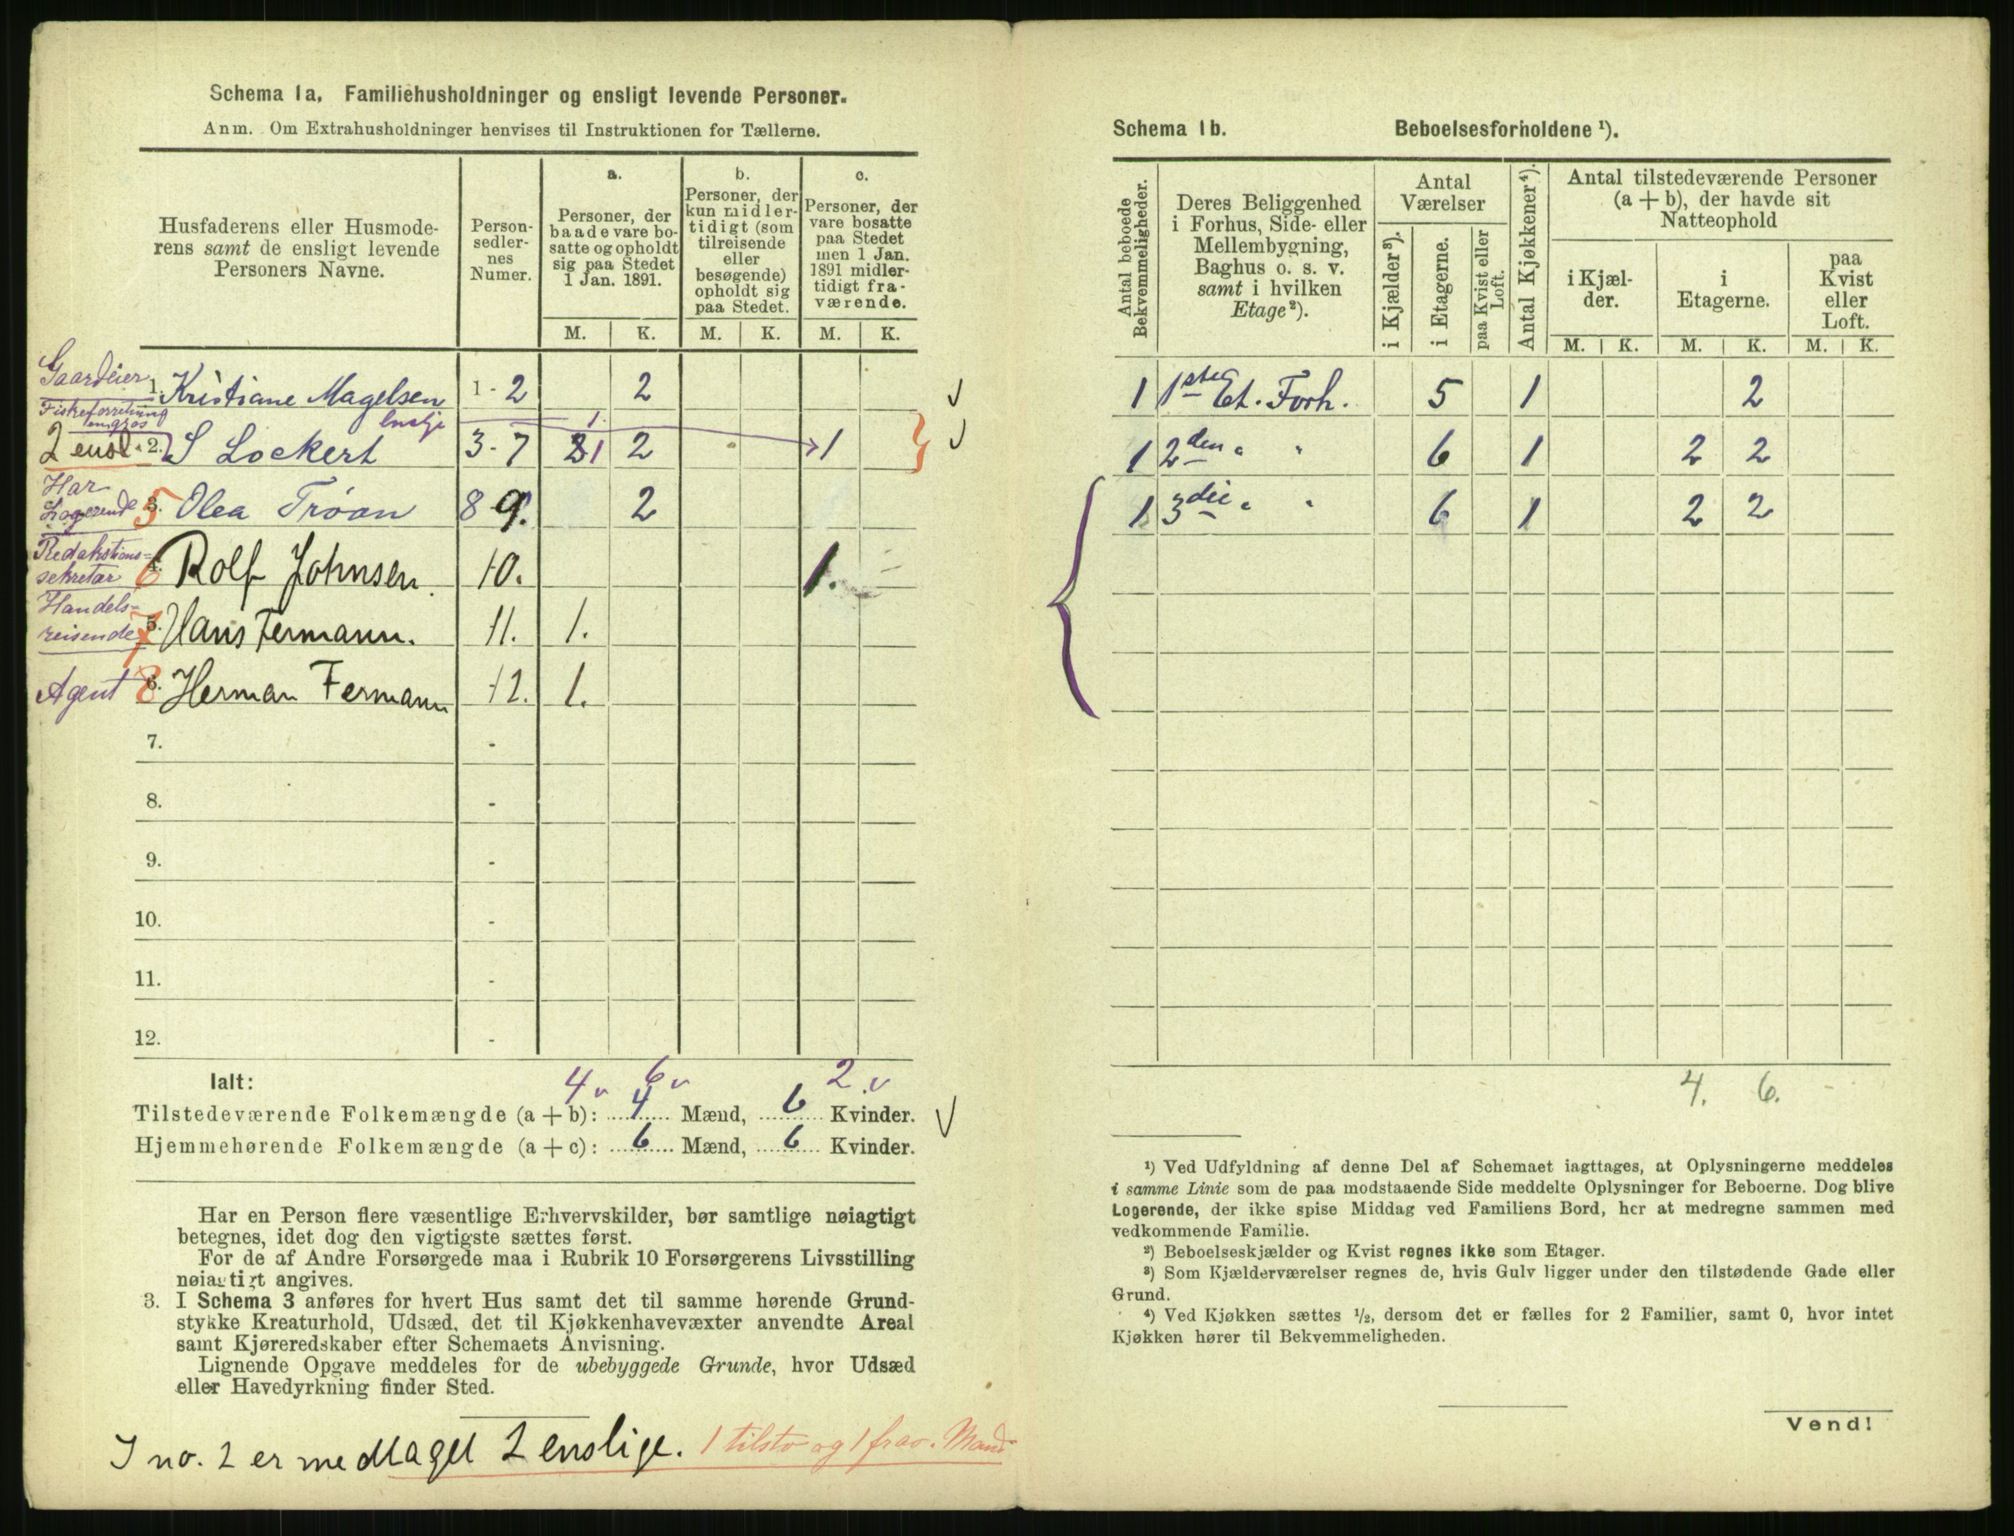 Schema 1a. Familiehusholdninger og ensligt levende Personer.
Anm. Om Extrahusholdninger henvises til Instruktionen for Tællerne.
Husfaderens eller Husmode-
rens samt de ensligt levende
Personers Navne.
Person-
sedler-
nes
Numer.
a.
Personer, der
baade vare bo-
satte og opholdt
sig paa Stedet
1 Jan. 1891.
b.
Personer, der
kun midler-
tidigt (som
tilreisende
eller
besøgende)
opholdt sig
paa Stedet.
c.
Personer, der
vare bosatte
paa Stedet
men 1 Jan.
1891 midler-
tidigt fra-
værende.
M. K. M. K. M. K.
Gaardeier
1. Kristiane Magelsen 1-2 2 √
Fiskeforretning
en gros
enslje 1.
2 ensl. 2. S Lockert 3-7 1 2 1 √
Har
Logerende
3. 5 Olea Trøan 8-9. 2
Redaktions-
sekretær
4. 6 Rolf Johnsen. 10. 1.
Handels-
reisende
5. 7 Hans Fermann. 11. 1.
Agent 6. 8 Herman Fermann 12. 1.
7. -
8. -
9. -
10. -
11. -
12. -
4 v 6 v 2 v
Ialt:
Tilstedeværende Folkemængde (a + b): 4 Mænd, 6 Kvinder. √
Hjemmehørende Folkemængde (a + c): 6 Mænd, 6 Kvinder.
Har en Person flere væsentlige Erhvervskilder, bør samtlige nøiagtigt
betegnes, idet dog den vigtigste sættes først.
For de af Andre Forsørgede maa i Rubrik 10 Forsørgerens Livsstilling
nøiagtigt angives.
3. I Schema 3 anføres for hvert Hus samt det til samme hørende Grund-
stykke Kreaturhold, Udsæd, det til Kjøkkenhavevæxter anvendte Areal
samt Kjøreredskaber efter Schemaets Anvisning.
Lignende Opgave meddeles for de ubebyggede Grunde, hvor Udsæd
eller Havedyrkning finder Sted.
I no. 2 er medtaget 2 enslige. 1 tilst. og 1 frav. Mand
Schema 1b. Beboelsesforholdene ¹).
Antal beboede
Bekvemmeligheder.
Deres Beliggenhed
i Forhus, Side- eller
Mellembygning,
Baghus o. s. v.
samt i hvilken
Etage²).
Antal
Værelser
i Kjælder³).
i Etagerne.
paa Kvist eller
Loft.
Antal Kjøkkener⁴).
Antal tilstedeværende Personer
(a + b), der havde sit
Natteophold
i Kjæl-
der.
i
Etagerne.
paa
Kvist
eller
Loft.
M. K. M. K. M. K.
1 1ste Et. Forh. 5 1 2
1 2den " " 6 1 2 2
1 3die " " 6 1 2 2
4. 6.
¹) Ved Udfyldning af denne Del af Schemaet iagttages, at Oplysningerne meddeles
i samme Linie som de paa modstaaende Side meddelte Oplysninger for Beboerne. Dog blive
Logerende, der ikke spise Middag ved Familiens Bord, her at medregne sammen med
vedkommende Familie.
²) Beboelseskjælder og Kvist regnes ikke som Etager.
³) Som Kjælderværelser regnes de, hvis Gulv ligger under den tilstødende Gade eller
Grund.
⁴) Ved Kjøkken sættes ½, dersom det er fælles for 2 Familier, samt 0, hvor intet
Kjøkken hører til Bekvemmeligheden.
Vend!